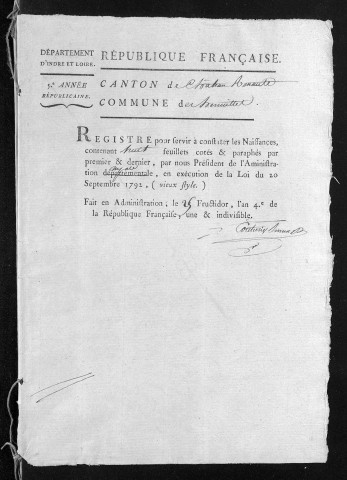 DÉPARTEMENT
D'INDRE ET LOIRE.
5.e ANNÉE
RÉPUBLICAINE.
RÉPUBLIQUE FRANÇAISE.
CANTON de Chateau Renault
COMMUNE de
REGISTRE pour servir à constater les Naissances,
contenant huit feuillets cotés & paraphés par
premier & dernier, par nous Président de l'Aministra-
tion départementale, en exécution de la Loi du 20
Septembre 1792, ( vieux style. )
Fait en Administration; le 25 Fructidor, l'an 4.e de
la République Française, une & indivisible.